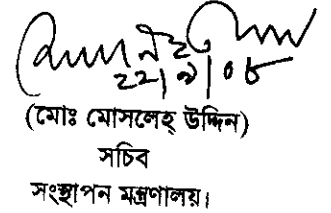 ২২|৯|০৮
(মোঃ মোসলেহ্ উদ্দিন)
সচিব
সংস্থাপন মন্ত্রণালয়।